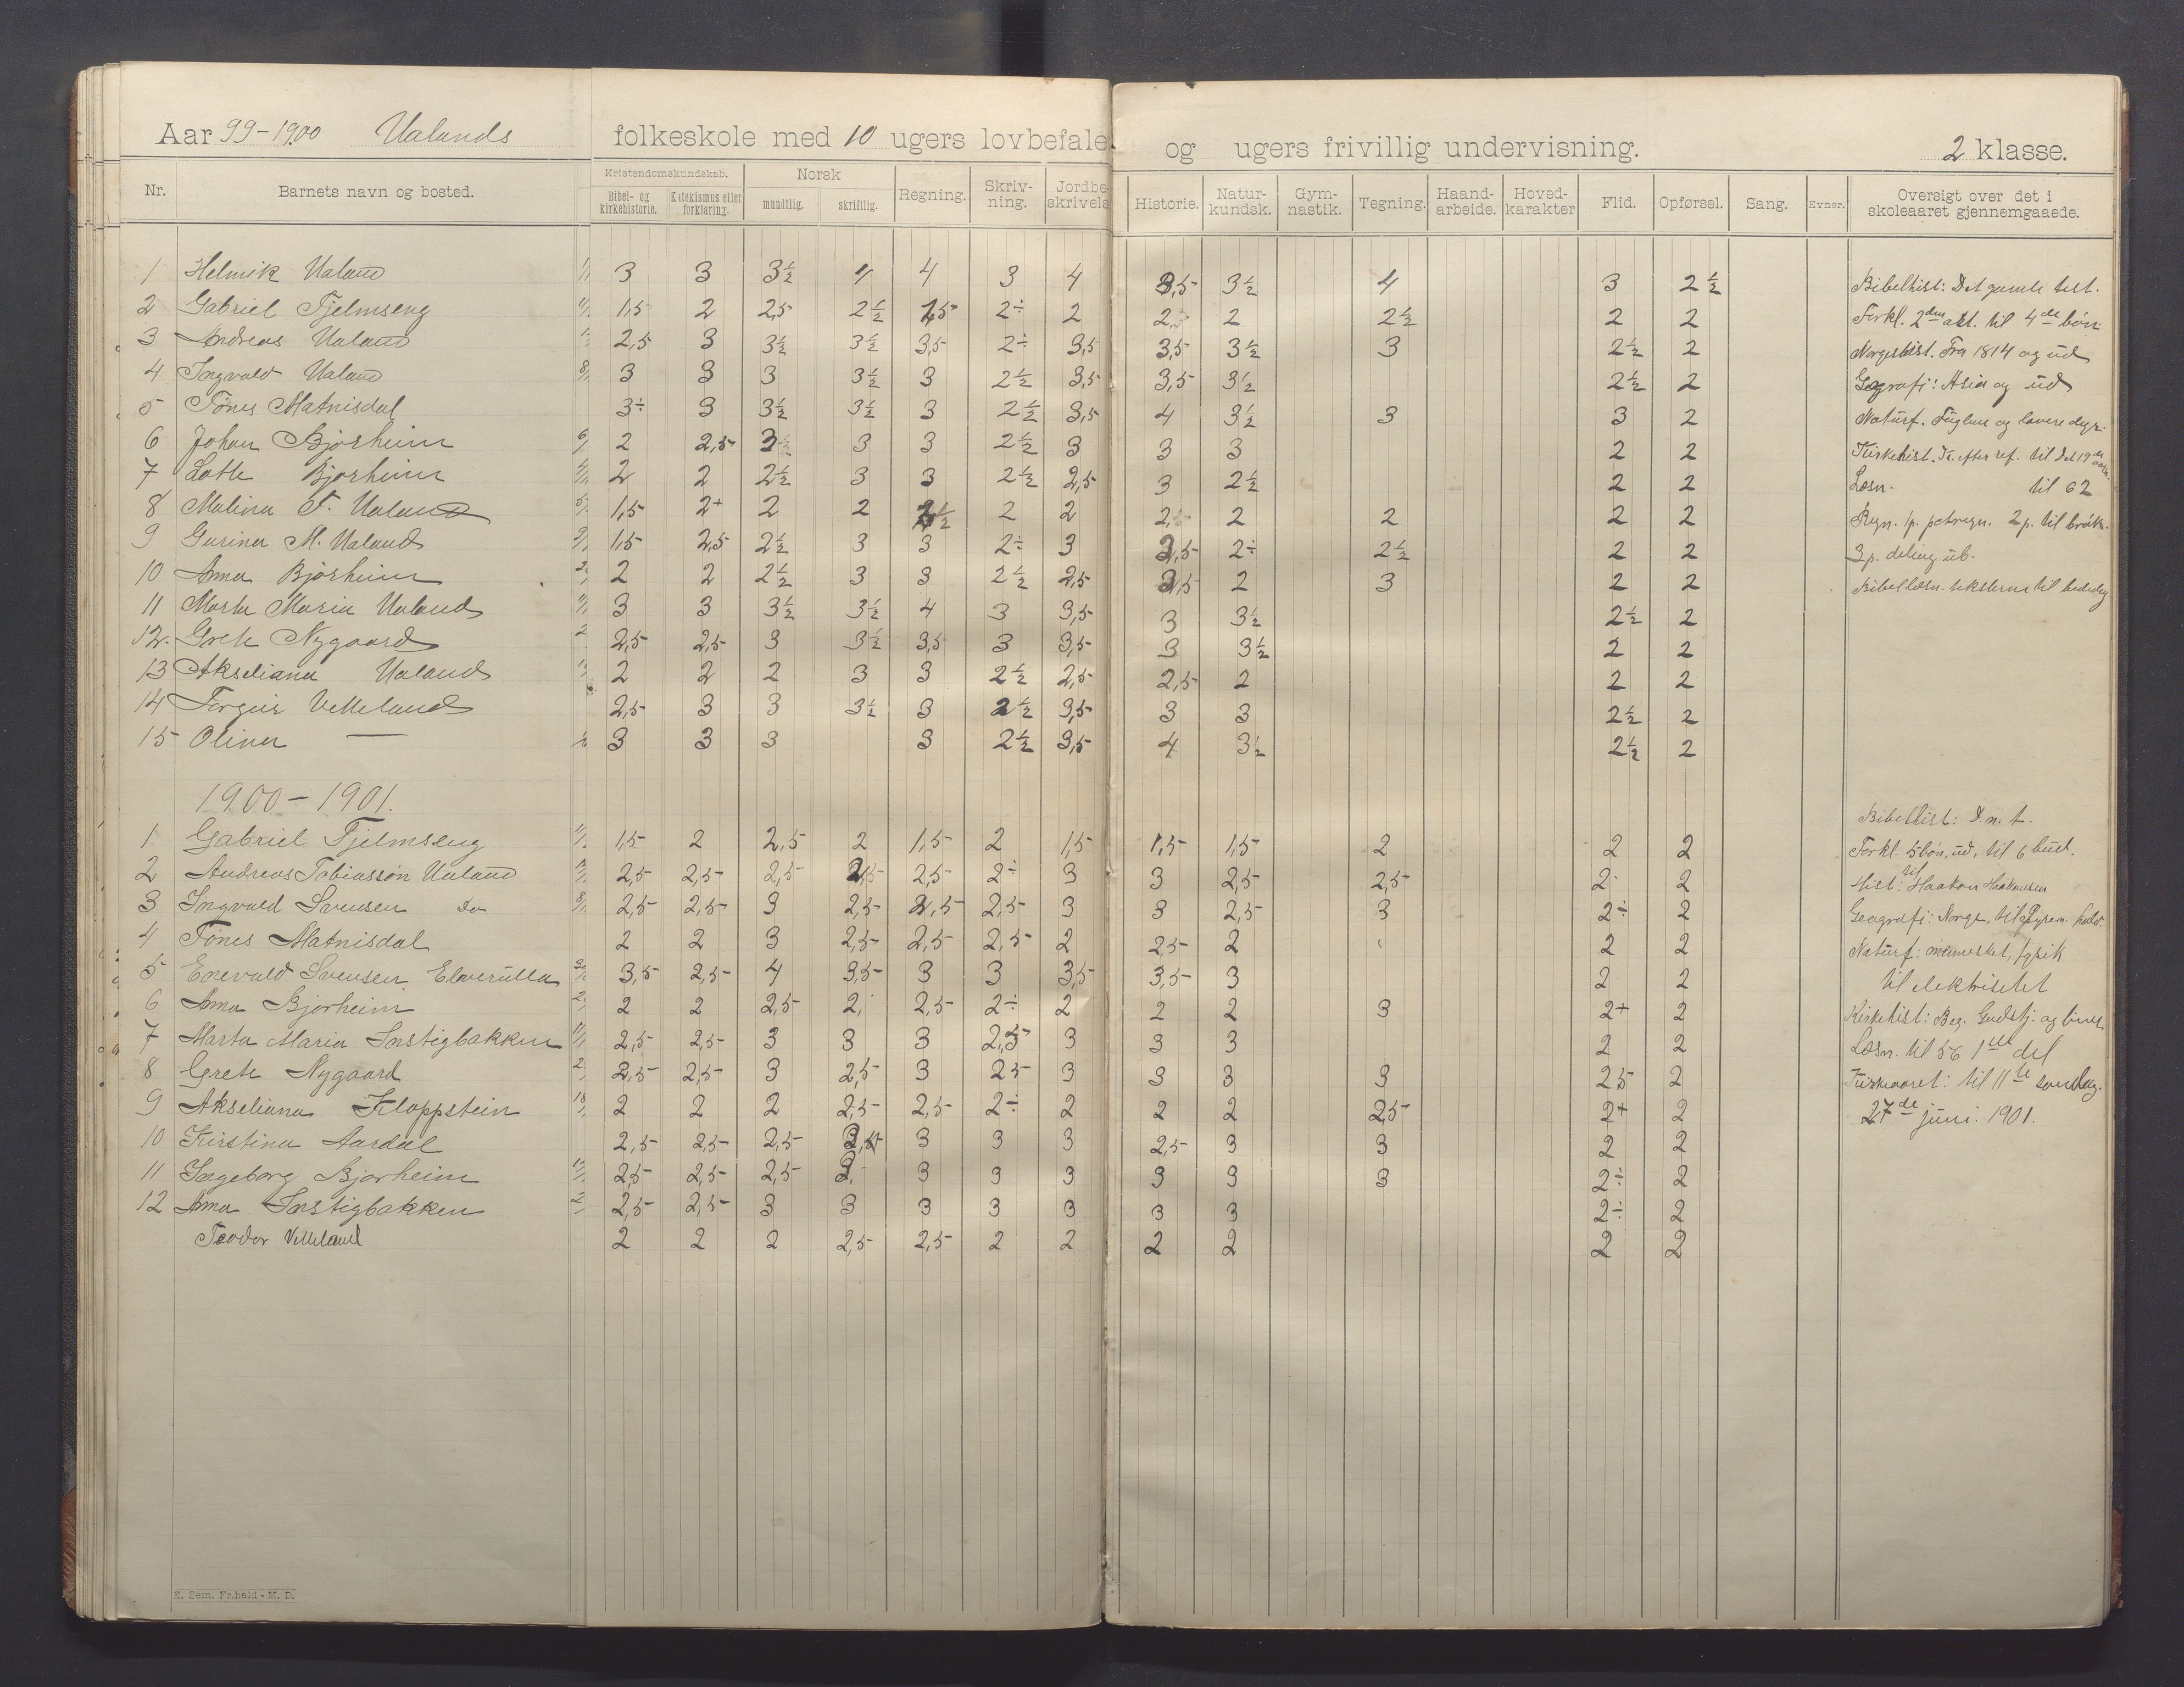 Aar 99-1900 Ualands folkeskole med 10 ugers lovbefale og ugers frivillig undervisning. 2 klasse.
Nr. Barnets navn og bosted. Kristendomskundskab. Bibel- og kirkehistorie. Katekismus eller forklaring. Norsk mundtlig. skriftlig. Regning. Skriv-ning. Jordbe skrivels Historie. Natur-kundsk. Gym-nastik. Tegning. Haand-arbeide. Hoved-karakter Flid. Opførsel. Sang. Evner. Oversigt over det i skoleaaret gjennemgaaede.
1 Helmik Ualand 3 3 3½ 4 4 3 4 3,5 3½ 4 3 2½ Bibelhist: Det gamle test.
2 Gabriel Tjelmseng 1,5 2 2,5 2½ 2÷ 2 2 2½ 2 2 Forkl. 2den art. til 4de bøn.
3 Andreas Ualand 2,5 3 3½ 3½ 3,5 2÷ 3,5 3,5 3½ 3 2½ 2 Norgeshist. Fra 1814 og ud
4 Ingvald Ualand 3 3 3 3½ 3 2½ 3,5 3,5 3½ 2½ 2 Geografi: Asia og ud
5 Tønes Matnisdal 3÷ 3 3½ 3½ 3 2½ 3,5 4 3½ 3 3 2 Naturf. Fuglene og lavere dyr.
6 Johan Bjørheim 2 2,5 3 3 3 2½ 3 3 3 2 2 Kirkehist. Fr. efter ref. til det 19de aarh.
7 Lotte Bjørheim 2 2 2½ 3 3 2½ 2,5 3 2½ 2 2 Læsn. til 62
8 Malina T. Ualand 1,5 2+ 2 2 2½ 2 2 2 2 2 2 Regn. 1p. pctregn. 2p. til brøk.
9 Gurina M. Ualand 1,5 2,5 2½ 3 3 2÷ 3 2,5 2÷ 2½ 2 2 3p. deling ub.
10 Anna Bjørheim 2 2 2½ 3 3 2½ 2,5 2,5 2 3 2 2 Bibellæsn. teksterne til bededag
11 Marta Maria Ualand 3 3 3½ 3½ 4 3 3,5 3 3½ 2½ 2
12. Grete Nygaard 2,5 2,5 3 3½ 3,5 3 3,5 3 3½ 2 2
13 Akseliana Ualand 2 2 2 3 3 2½ 2,5 2,5 2 2 2
14 Torgeir Velleland 2,5 3 3 3½ 3 2½ 3,5 3 3 2½ 2
15 Olina — 3 3 3 3 2½ 3,5 4 3½ 2½ 2
1900-1901.
Bibelhist: D. n. t.
1 Gabriel Tjelmseng 1,5 2 2,5 2 1,5 2 1,5 1,5 1,5 2 2 2 Forkl. 5 bøn, ud, til 6 bud.
2 Andreas Tobiassøn Ualand 2,5 2,5 2,5 2,5 2,5 2÷ 3 3 2,5 2,5 2 2 Hist: til Haakon Haakonsen
3 Ingvald Svensen Do 2,5 2,5 3 2,5 2,5 2,5 3 3 2,5 3 2÷ 2 Geografi: Norge, til Pyren. halv.
4 Tønes Matnisdal 2 2 3 2,5 2,5 2,5 2 2,5 2 2 2 Naturf: mennesket, fysik
5 Enevald Svensen 3,5 2,5 4 3,5 3 3 3,5 3,5 3 2 2 til elektrisitet
6 Anna Bjørheim 2 2 2,5 2 2,5 2÷ 2 2 2 3 2+ 2 Kirkehist: Beg. Gudstj. og
7 Marta Maria Instigbakken 2,5 2,5 3 3 3 2,5 3 3 3 2 2 Læsn. til 56 1ste del
8 Grete Nygaard 2,5 2,5 3 2,5 3 2,5 3 3 3 3 2,5 2 Kirkeaaret: til 11te søndag.
9 Akseliana Kloppstein 2 2 2 2,5 2,5 2÷ 2 2 2 2,5 2+ 2 27de juni. 1901.
10 Kirstina Aardal 2,5 2,5 2,5 3 3 3 2,5 3 3 2 2
11 Ingeborg Bjørheim 2,5 2,5 2,5 3 3 3 3 3 3 2÷ 2
12 Anna Instigbakken 2,5 2,5 3 3 3 3 3 3 3 2÷ 2
Teodor Velleland 2 2 2 2,5 2,5 2 2 2 2 2 2
E. Sem. Fr.hald - M. D.